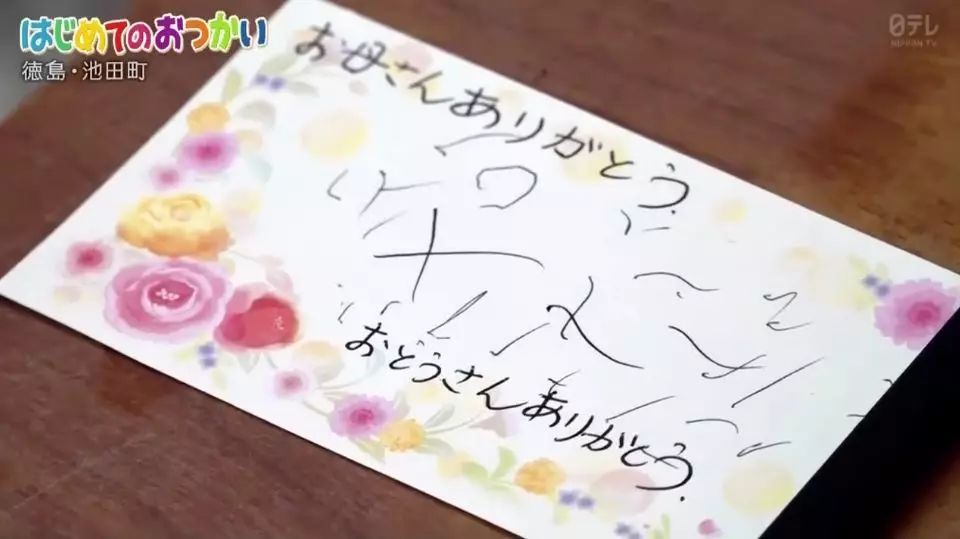 はじめてのおつかい
徳島・池田町
日テレ
NIPPON TV
お母さんありがとう.
おどうさんありがとう.